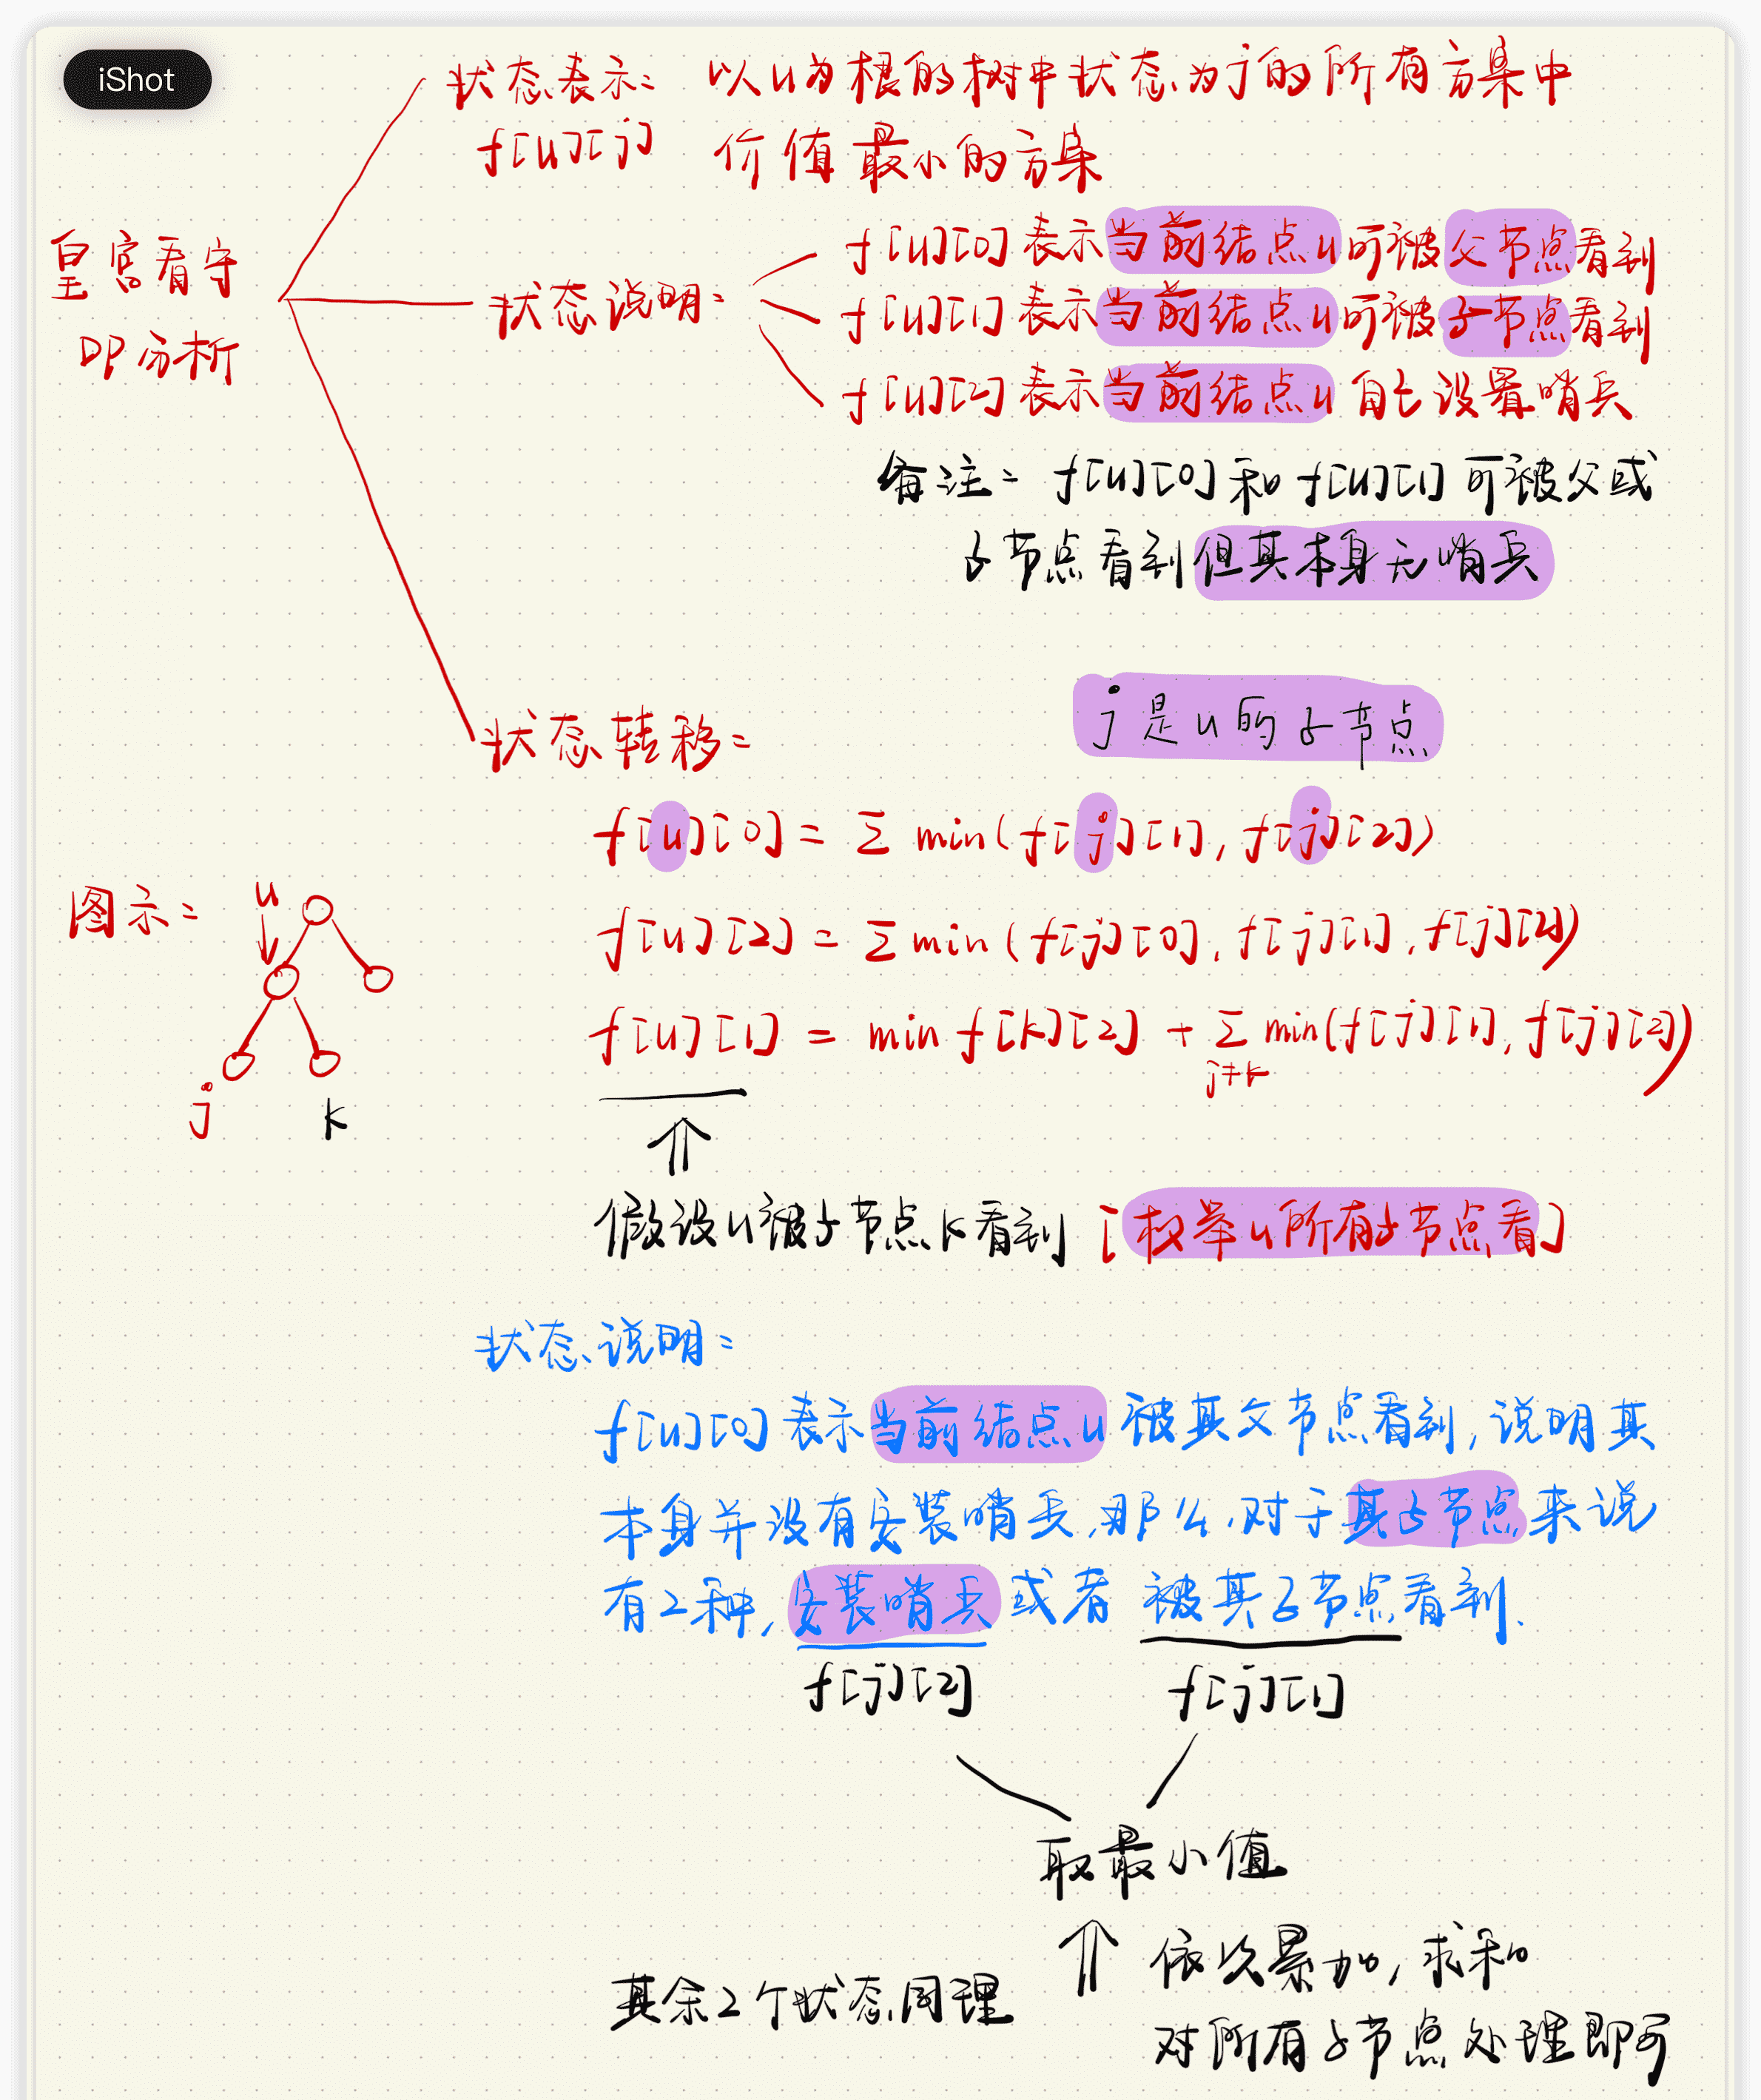 iShot
状态表示: 以u为根的树中状态为j的所有方案中
f[u][j] 价值最小的方案
皇宫看守
DP分析
状态说明:
f[u][0]表示当前结点u可被父节点看到
f[u][1]表示当前结点u可被子节点看到
f[u][2]表示当前结点u自己设置哨兵
备注: f[u][0]和f[u][1]可被父或
子节点看到但其本身无哨兵
状态转移:
j是u的子节点
f[u][0] = Σ min(f[j][1], f[j][2])
f[u][2] = Σ min(f[j][0], f[j][1], f[j][2])
f[u][1] = min f[k][2] + Σ min(f[j][1], f[j][2])
j≠k
图示:
u
j
k
假设u被子节点k看到 [枚举u所有子节点看]
状态说明:
f[u][0]表示当前结点u被其父节点看到,说明其
本身并没有安装哨兵,那么,对于其子节点来说
有2种,安装哨兵或者 被其子节点看到.
f[j][2] f[j][1]
取最小值
依次累加,求和
其余2个状态同理
对所有子节点处理即可